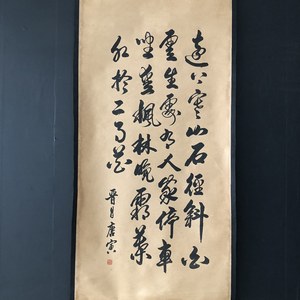 遠上寒山石徑斜白
雲生處有人家停車
坐愛楓林晚霜葉
紅於二月花
晉昌唐寅